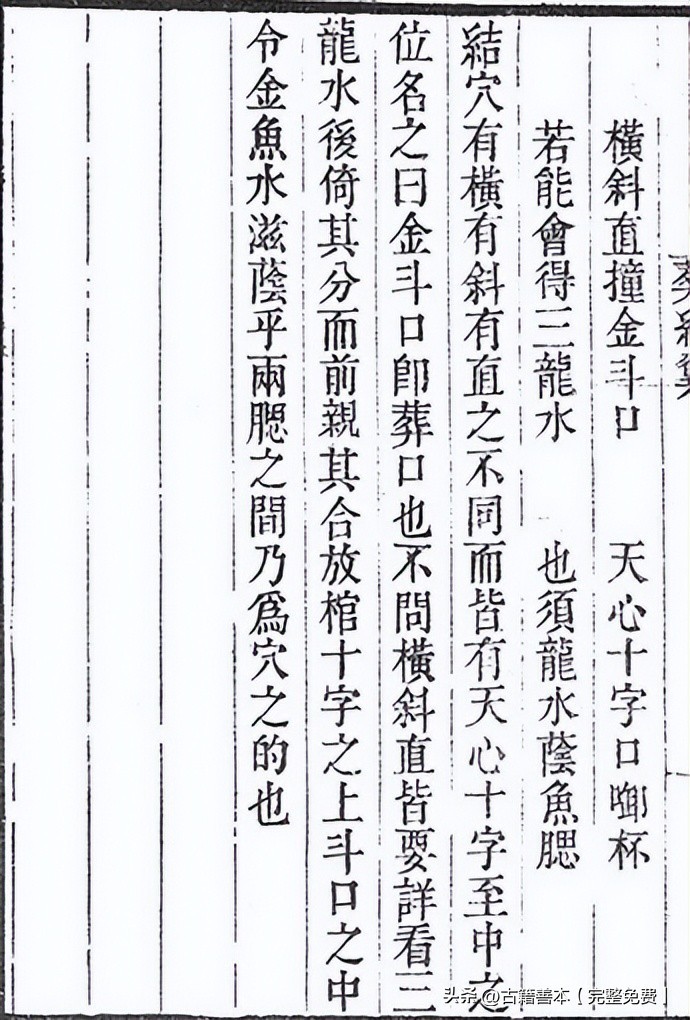 橫斜直撞金斗口　天心十字口啣杯
若能會得三龍水　也須龍水蔭魚腮
結穴有橫有斜有直之不同而皆有天心十字至中之
位名之曰金斗口卽葬口也不問橫斜直皆要詳看三
龍水後倚其分而前親其合放棺十字之上斗口之中
令金魚水滋蔭乎兩腮之間乃爲穴之的也
头条 @古籍善本【完整免费】